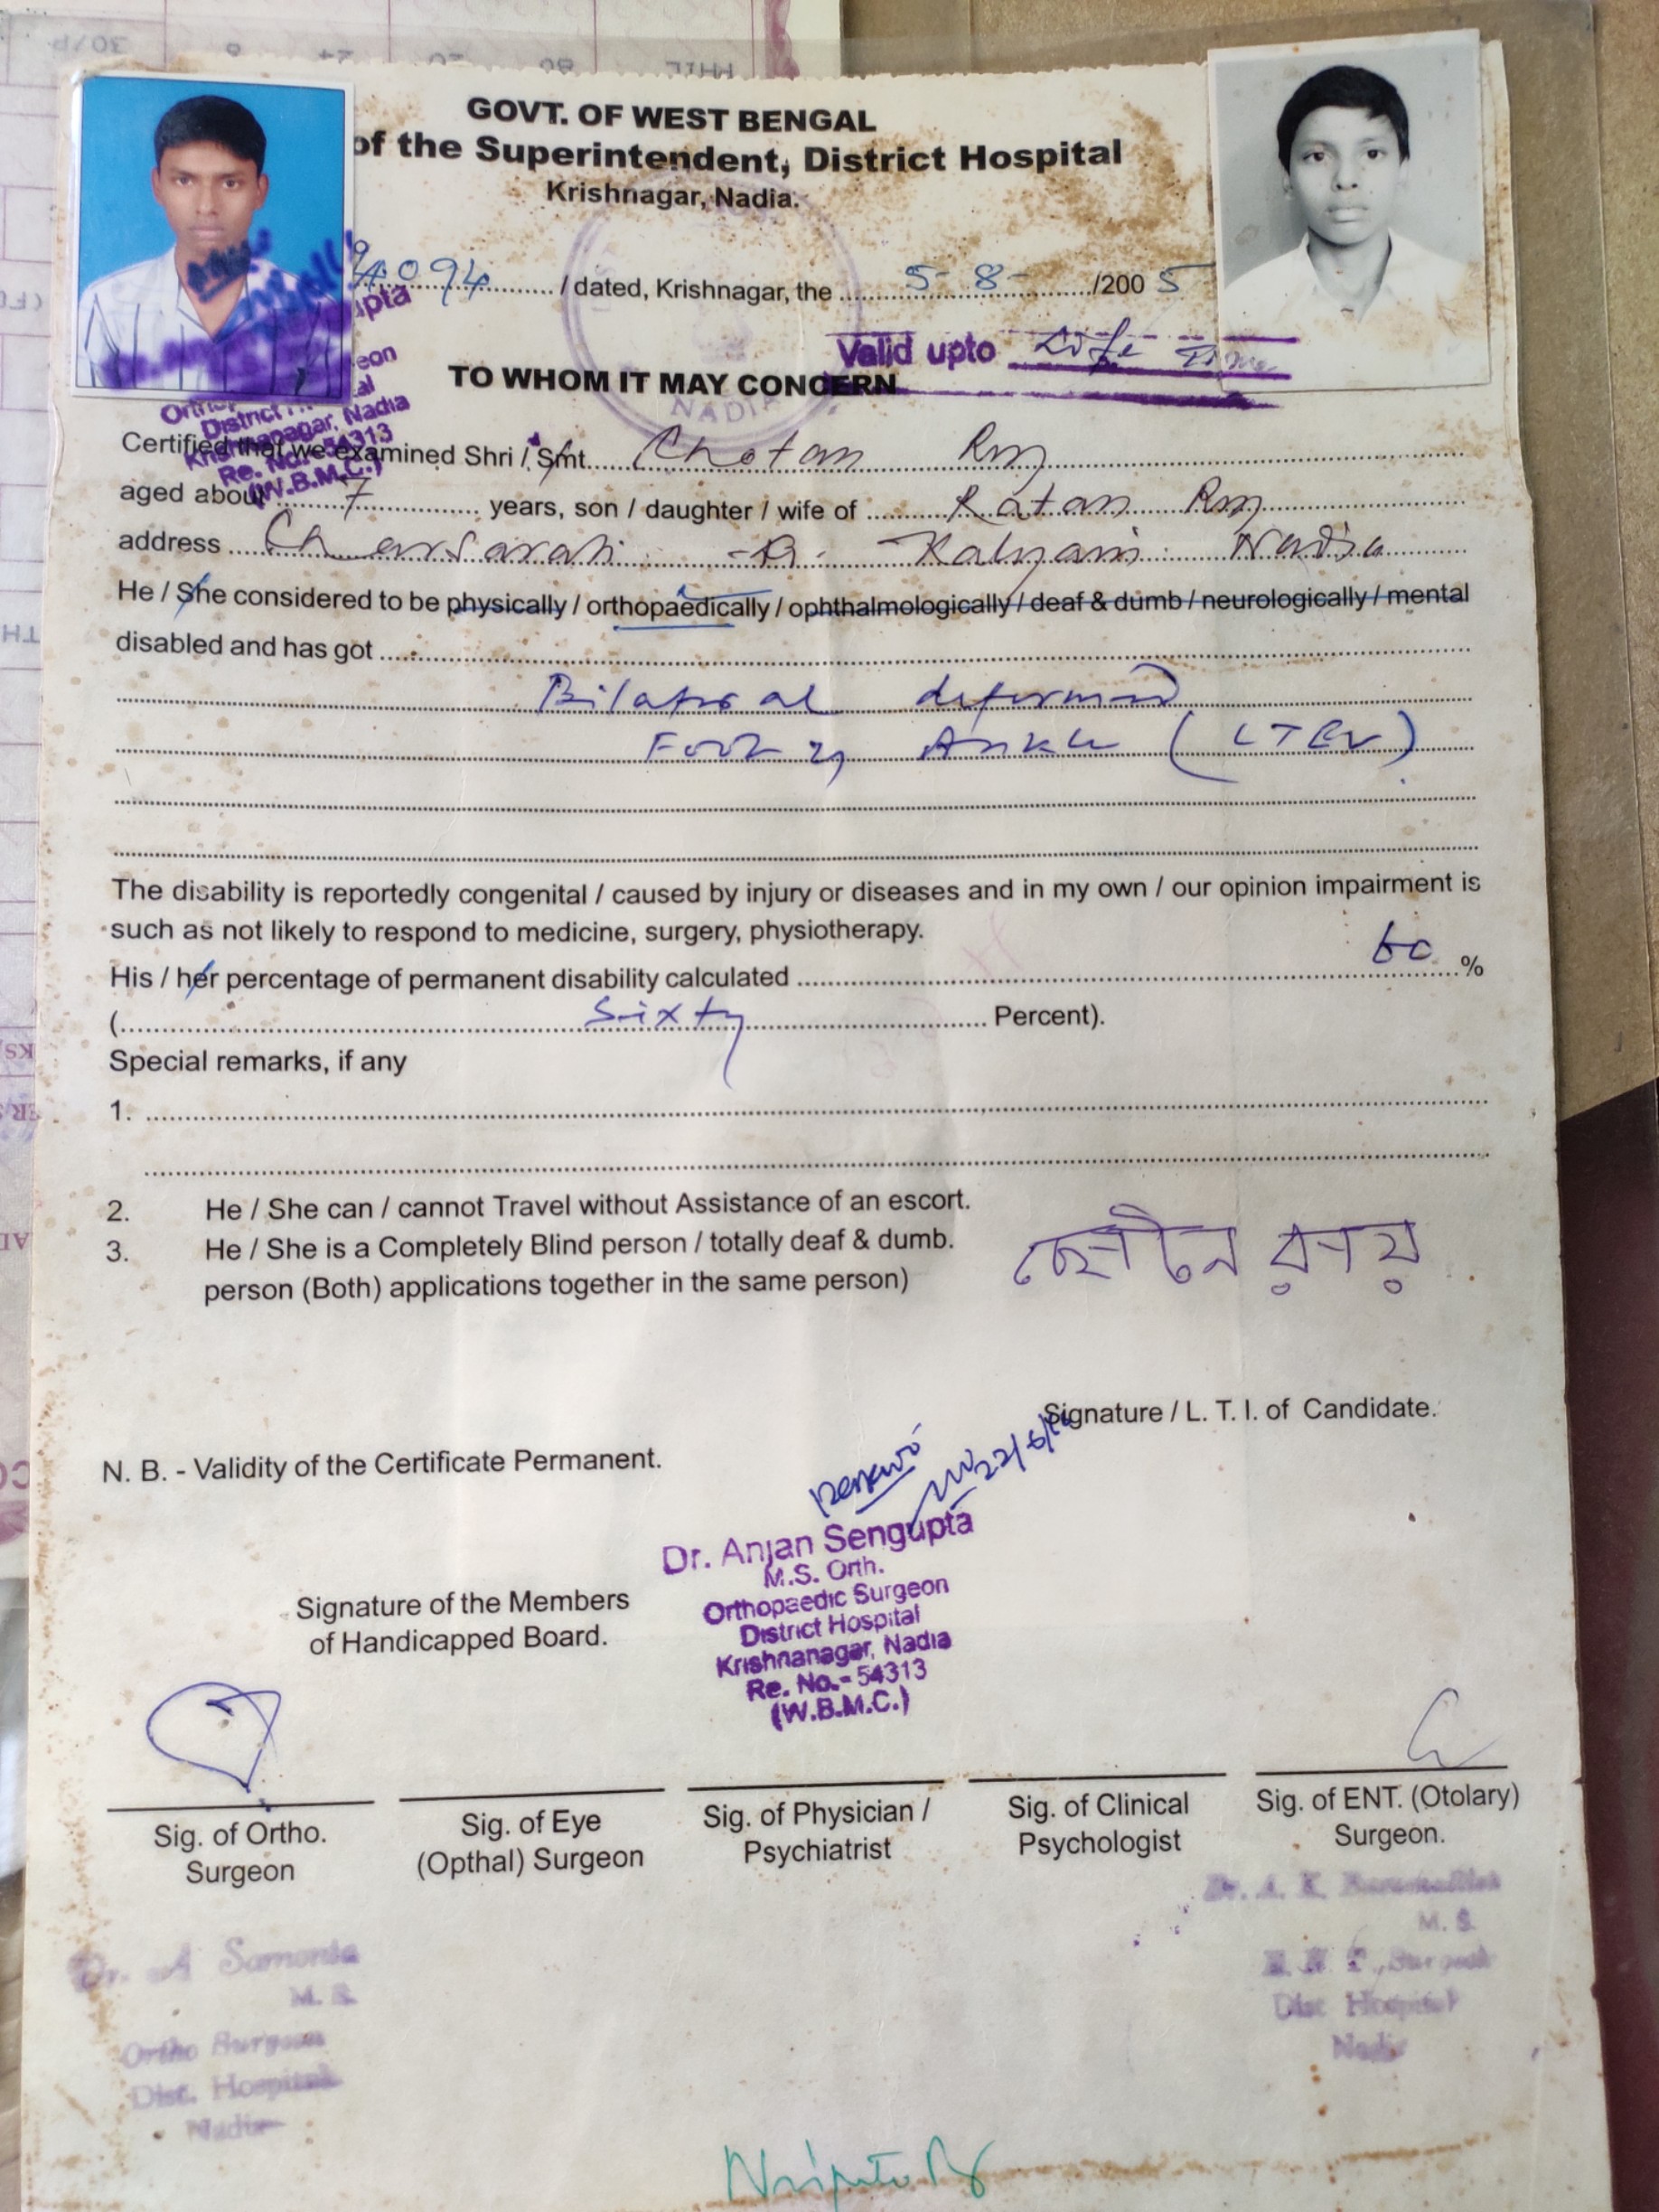 GOVT. OF WEST BENGAL
of the Superintendent, District Hospital
Krishnagar, Nadia.
4094 / dated, Krishnagar, the 5-8- /2005
Valid upto Life Time
TO WHOM IT MAY CONCERN
NADIA
Orthop
District H
Krishnanagar, Nadia
Re. No.- 54313
(W.B.M.C.)
Certified that we examined Shri / Smt. Chotan Roy
aged about 7 years, son / daughter / wife of Ratan Roy
address Kalyani Nadia
He / She considered to be physically / orthopaedically / ophthalmologically / deaf & dumb / neurologically / mental
disabled and has got
Bilateral deformed
Foot Ankle (CTEV)
The disability is reportedly congenital / caused by injury or diseases and in my own / our opinion impairment is
such as not likely to respond to medicine, surgery, physiotherapy.
His / her percentage of permanent disability calculated 60 %
( Sixty Percent).
Special remarks, if any
1.
2. He / She can / cannot Travel without Assistance of an escort.
3. He / She is a Completely Blind person / totally deaf & dumb.
person (Both) applications together in the same person)
ছোটন রায়
Signature / L. T. I. of Candidate.
N. B. - Validity of the Certificate Permanent.
Renewed
22/6/16
Dr. Anjan Sengupta
M.S. Orth.
Orthopaedic Surgeon
District Hospital
Krishnanagar, Nadia
Re. No.- 54313
(W.B.M.C.)
Signature of the Members
of Handicapped Board.
Sig. of Ortho.
Surgeon
Sig. of Eye
(Opthal) Surgeon
Sig. of Physician /
Psychiatrist
Sig. of Clinical
Psychologist
Sig. of ENT. (Otolary)
Surgeon.
Dr. A Samanta
M. S.
Ortho Surgeon
Dist. Hospital
Nadia
Dr. A. K.
M. S.
E. N. T. Surgeon
Dist Hospital
Nadia